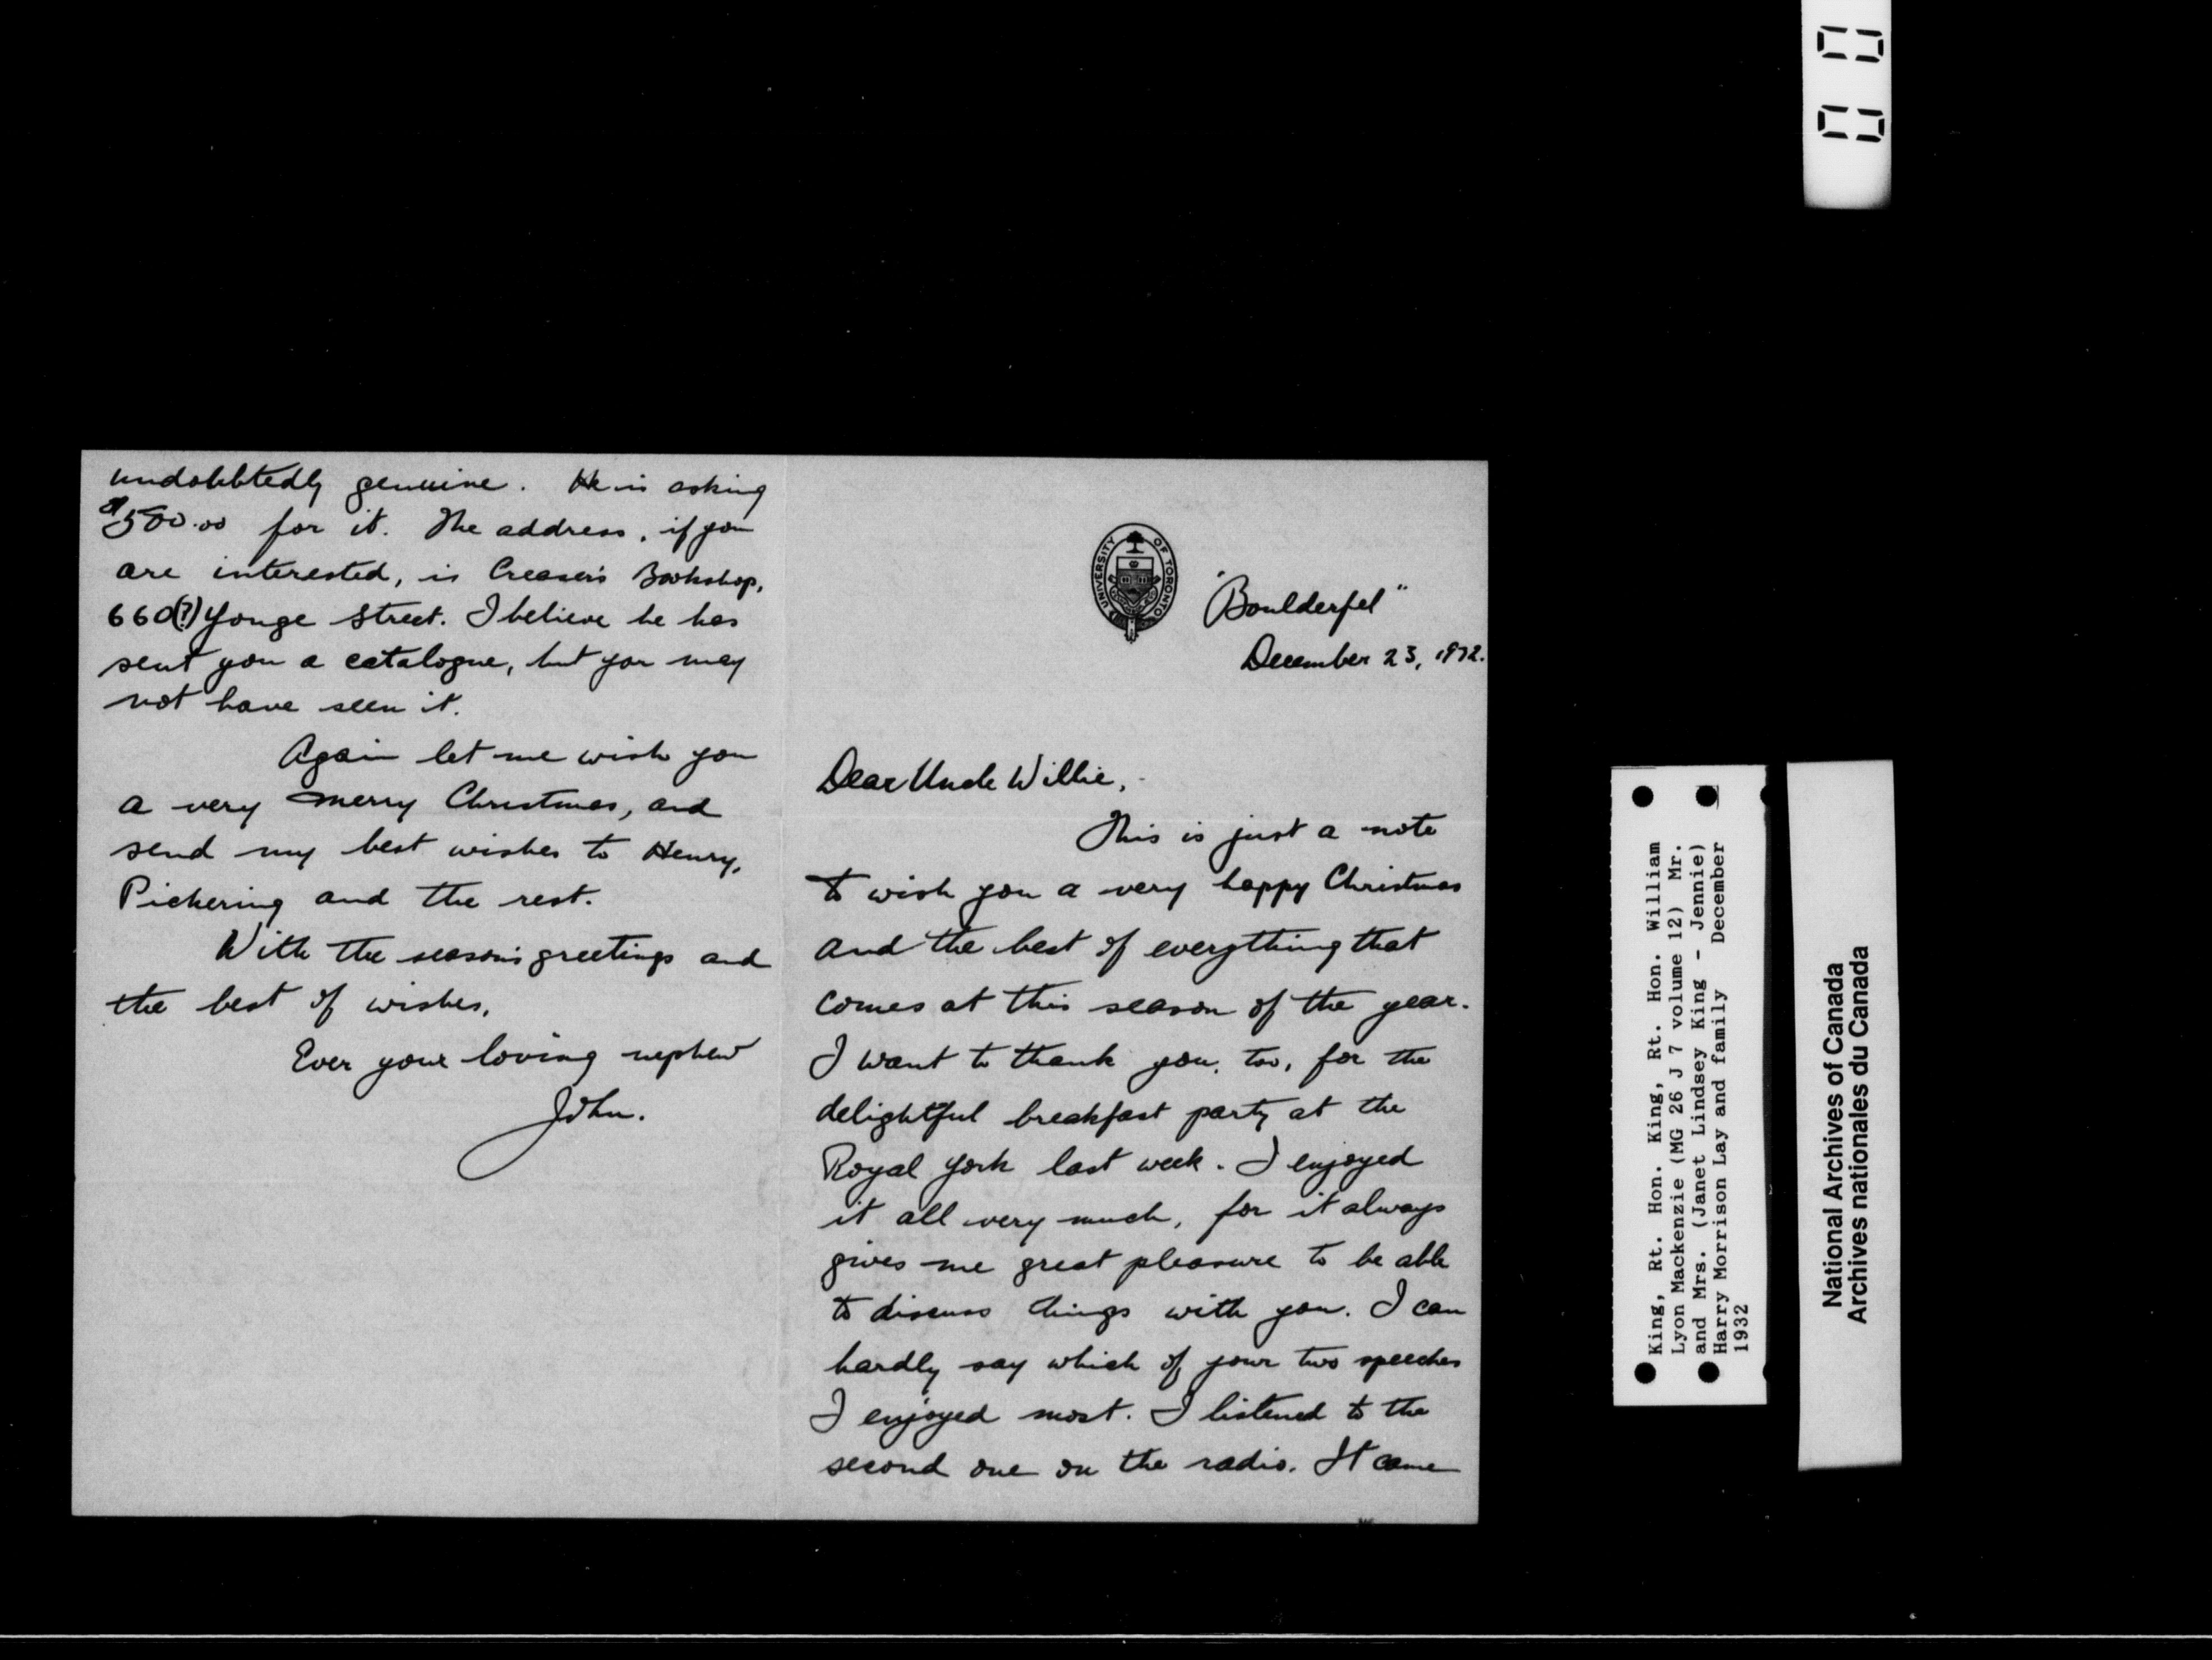 undoubtedly genuine. He is asking
$500.00 for it. The address, if you
are interested, is Creaser's Bookshop,
660(?) Yonge Street. I believe he has
sent you a catalogue, but you may
not have seen it.
Again let me wish you
a very merry Christmas, and
send my best wishes to Henry,
Pickering and the rest.
With the season's greetings and
the best of wishes,
Ever your loving nephew
John.
UNIVERSITY OF TORONTO
"Boulderfel"
December 23, 1932.
Dear Uncle Willie,
This is just a note
to wish you a very happy Christmas
and the best of everything that
comes at this season of the year.
I want to thank you, too, for the
delightful breakfast party at the
Royal York last week. I enjoyed
it all very much, for it always
gives me great pleasure to be able
to discuss things with you. I can
hardly say which of your two speeches
I enjoyed most. I listened to the
second one on the radio. It came
King, Rt. Hon. King, Rt. Hon. William
Lyon Mackenzie (MG 26 J 7 volume 12) Mr.
and Mrs. (Janet Lindsey King - Jennie)
Harry Morrison Lay and family December
1932
National Archives of Canada
Archives nationales du Canada